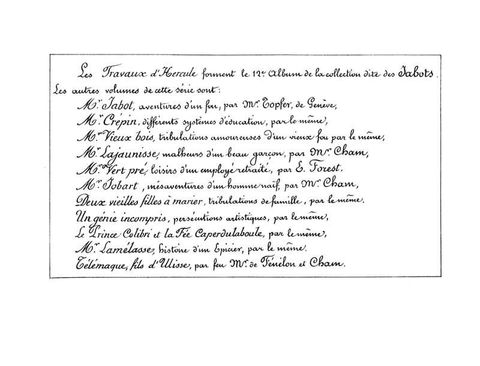 Les Travaux d'Hercule forment le 12e Album de la collection dite des Jabots.
Les autres volumes de cette série sont :
Mr. Jabot, aventures d'un fou, par Mr. Topfer, de Genève,
Mr. Crépin, différents systèmes d'éducation, par le même,
Mr. Vieux bois, tribulations amoureuses d'un vieux fou par le même,
Mr. Lajaunisse, malheurs d'un beau garçon, par Mr. Cham,
Mr. Vert pré, loisirs d'un employé retraité, par E. Forest,
Mr. Jobart, mésaventures d'un homme naïf, par Mr. Cham,
Deux vieilles filles à marier, tribulations de famille, par le même.
Un génie incompris, persécutions artistiques, par le même,
Le Prince Colibri et la Fée Caperdulaboule, par le même,
Mr. Lamélasse, histoire d'un Epicier, par le même.
Télémaque, fils d'Ulisse, par feu Mr. de Fénélon et Cham.